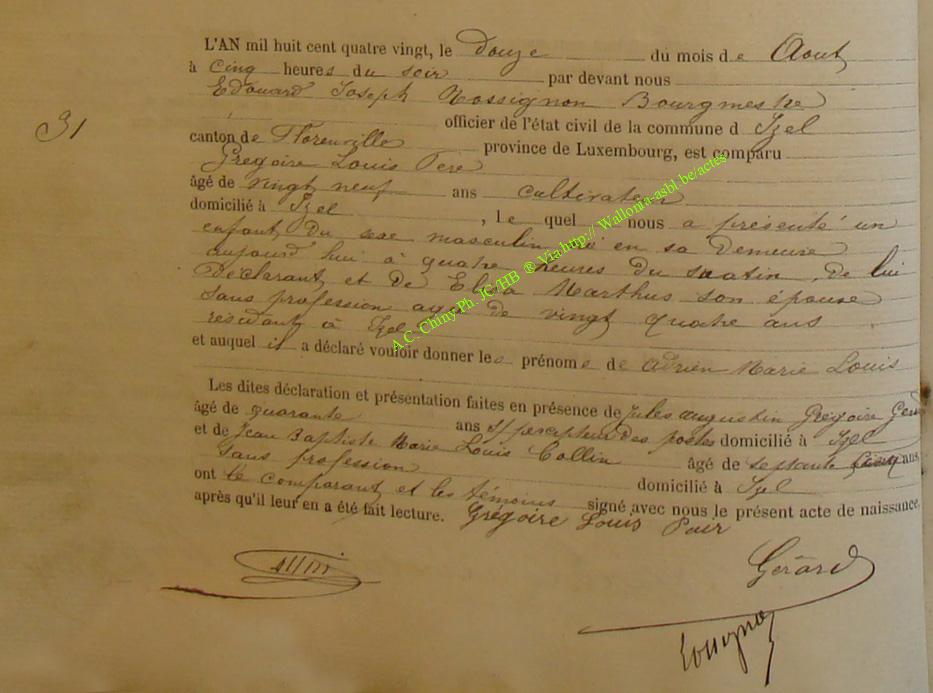 L'AN mil huit cent quatre vingt, le douze du mois de Aout
à cinq heures du soir par devant nous
Edouard Joseph Rossignon Bourgmestre
officier de l'état civil de la commune d Izel
31
canton de Florenville province de Luxembourg, est comparu
Gregoire Louis
âgé de vingt neuf ans cultivateur
domicilié à Izel , le quel nous a présenté un
enfant du sexe masculin né en sa demeure
aujourd hui à quatre heures du matin, de lui
Déclarant et de Marthus son épouse
sans profession agée de vingt quatre ans
residant à Izel
et auquel il a déclaré vouloir donner les prénoms de Adrien Marie Louis
Les dites déclaration et présentation faites en présence de Jules augustin Grégoire
âgé de quarante ans percepteur des postes domicilié à Izel
et de Jean Baptiste Marie Louis Collin âgé de septante cinq ans,
sans profession domicilié à Izel
ont le comparant et les témoins signé avec nous le présent acte de naissance,
après qu'il leur en a été fait lecture. Grégoire Louis
Gérard
Rossignon
A.C. Chiny Ph. JC/HB ® Via http:// Wallonia-asbl.be/actes